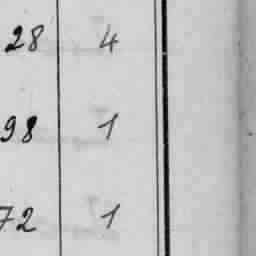 28 4
98 1
72 1